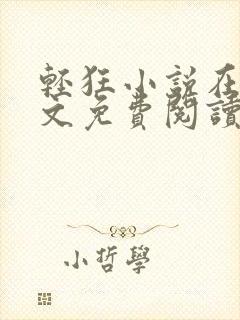 輕狂小說在
文免費閱讀
小哲學